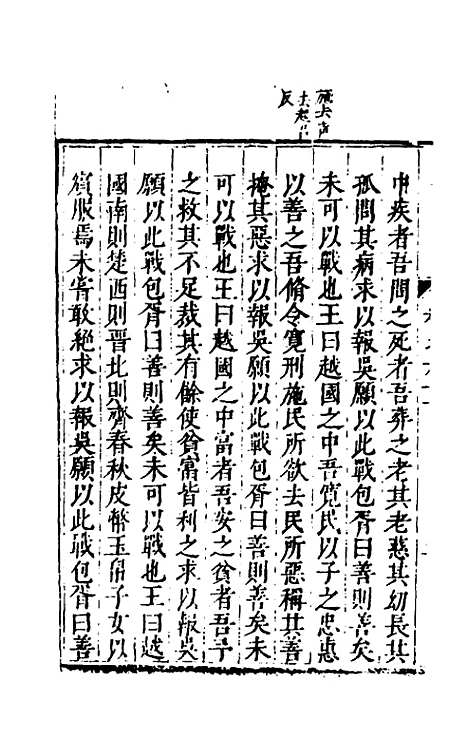 施去聲
去起呂
反
中疾者吾問之死者吾葬之老其老慈其幼長其
孤問其病求以報吳願以此戰包胥曰善則善矣
未可以戰也王曰越國之中吾寬民以子之忠惠
以善之吾脩令寬刑施民所欲去民所惡稱其善
掩其惡求以報吳願以此戰包胥曰善則善矣未
可以戰也王曰越國之中富者吾安之貧者吾予
之救其不足裁其有餘使貧富皆利之求以報吳
願以此戰包胥曰善則善矣未可以戰也王曰越
國南則楚西則晉北則齊春秋皮幣玉帛子女以
賓服焉未嘗敢絕求以報吳願以此戰包胥曰善